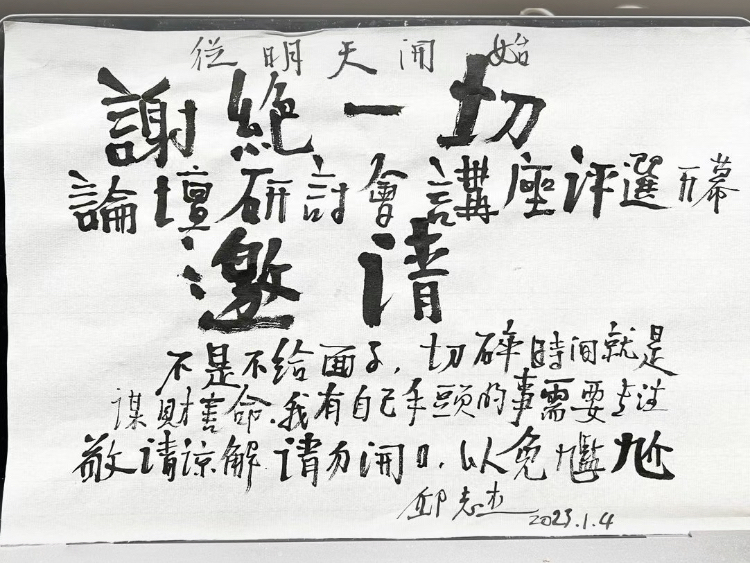 從明天開始
謝絕一切
論壇研討會講座评選开幕
邀请
不是不给面子，切碎時间就是
谋財害命.我有自己手頭的事需要专注
敬请谅解 请勿開口，以免尴尬
邱志杰
2023.1.4